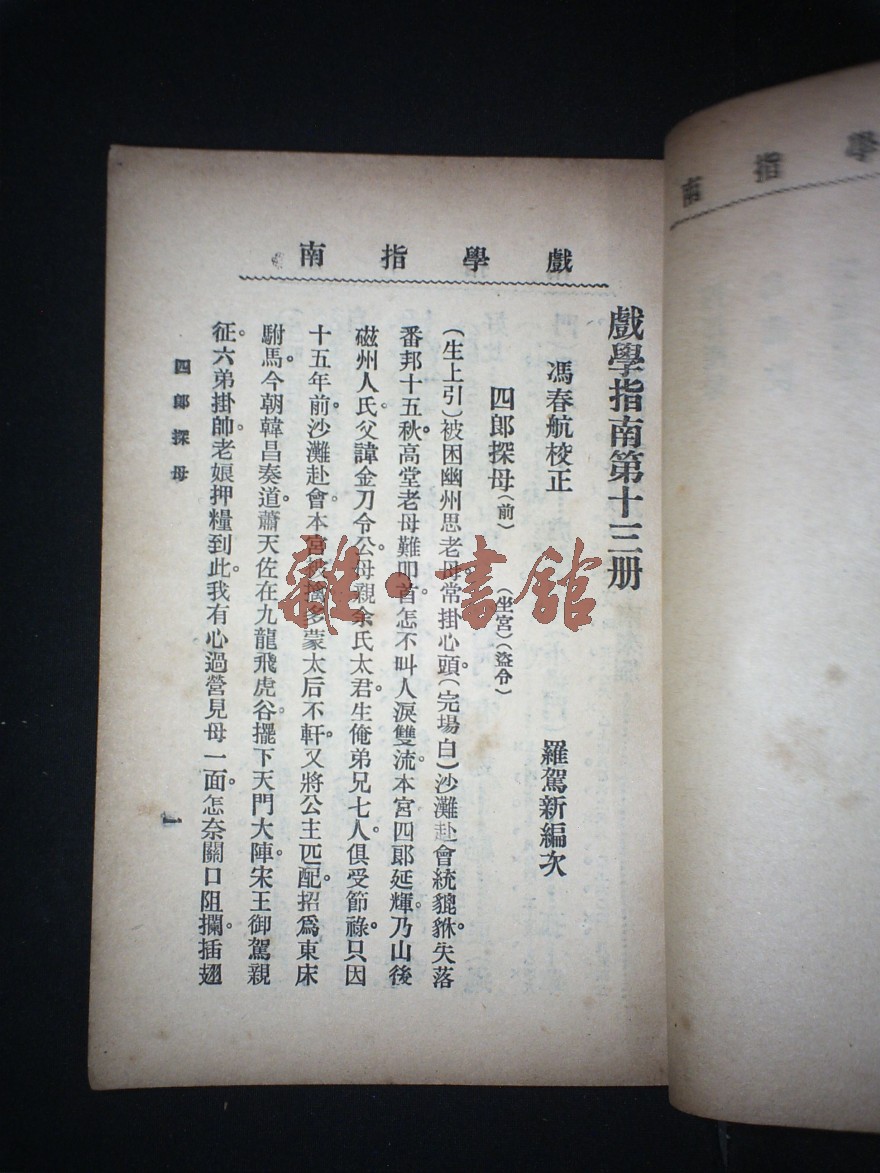 戲學指南
戲學指南第十三册
馮春航校正 羅駕新編次
四郎探母(前) (坐宮)(盜令)
(生上引)被困幽州思老母。常掛心頭。(完場白)沙灘赴會統貔貅。失落
番邦十五秋。高堂老母難叩首。怎不叫人淚雙流。本宮四郎延輝。乃山後
磁州人氏。父諱金刀令公。母親余氏太君。生俺弟兄七人。俱受節祿。只因
十五年前。沙灘赴會。本宮被擒。多蒙太后不軒。又將公主匹配。招爲東床
駙馬。今朝韓昌奏道。蕭天佐在九龍飛虎谷。擺下天門大陣。宋王御駕親
征。六弟掛帥。老娘押糧到此。我有心過營見母一面。怎奈關口阻攔。插翅
四郎探母
一
學指南
雜·書館